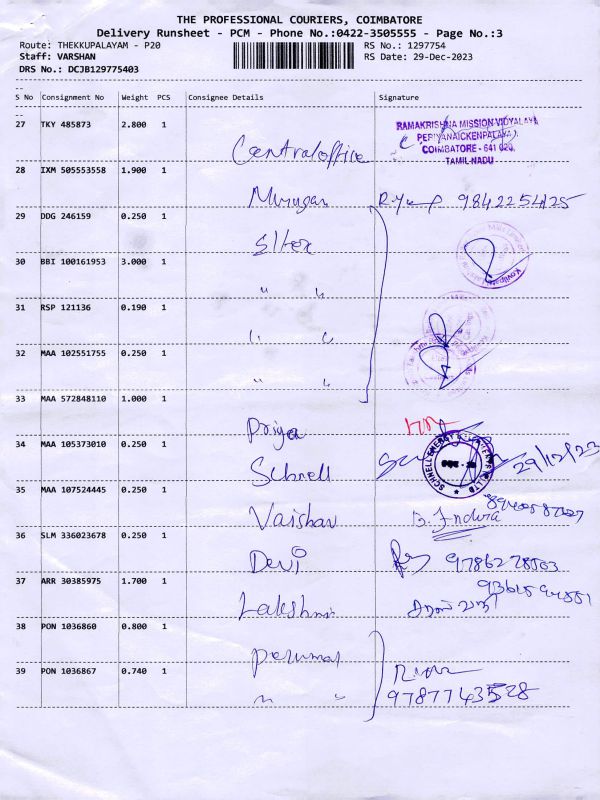 THE PROFESSIONAL COURIERS, COIMBATORE
Delivery Runsheet - PCM - Phone No.:0422-3505555 - Page No.:3
Route: THEKKUPALAYAM - P20 RS No.: 1297754
Staff: VARSHAN RS Date: 29-Dec-2023
DRS No.: DCJB129775403
S No Consignment No Weight PCS Consignee Details Signature
27 TKY 485873 2.800 1 Central office RAMAKRISHNA MISSION VIDYALAYA
PERIYANAICKENPALAYAM
COIMBATORE - 641 020.
TAMIL NADU
28 IXM 505553558 1.900 1 Murugan 9842254125
29 DDG 246159 0.250 1
30 BBI 100161953 3.000 1 " "
31 RSP 121136 0.190 1 " "
32 MAA 102551755 0.250 1 " "
33 MAA 572848110 1.000 1 Priya
34 MAA 105373010 0.250 1 Schnell 29/12/23
35 MAA 107524445 0.250 1 Vaishav B. Indira
36 SLM 336023678 0.250 1 Devi
37 ARR 30385975 1.700 1 Lakshmi
38 PON 1036860 0.800 1 Perumal
39 PON 1036867 0.740 1 " " 9787743528